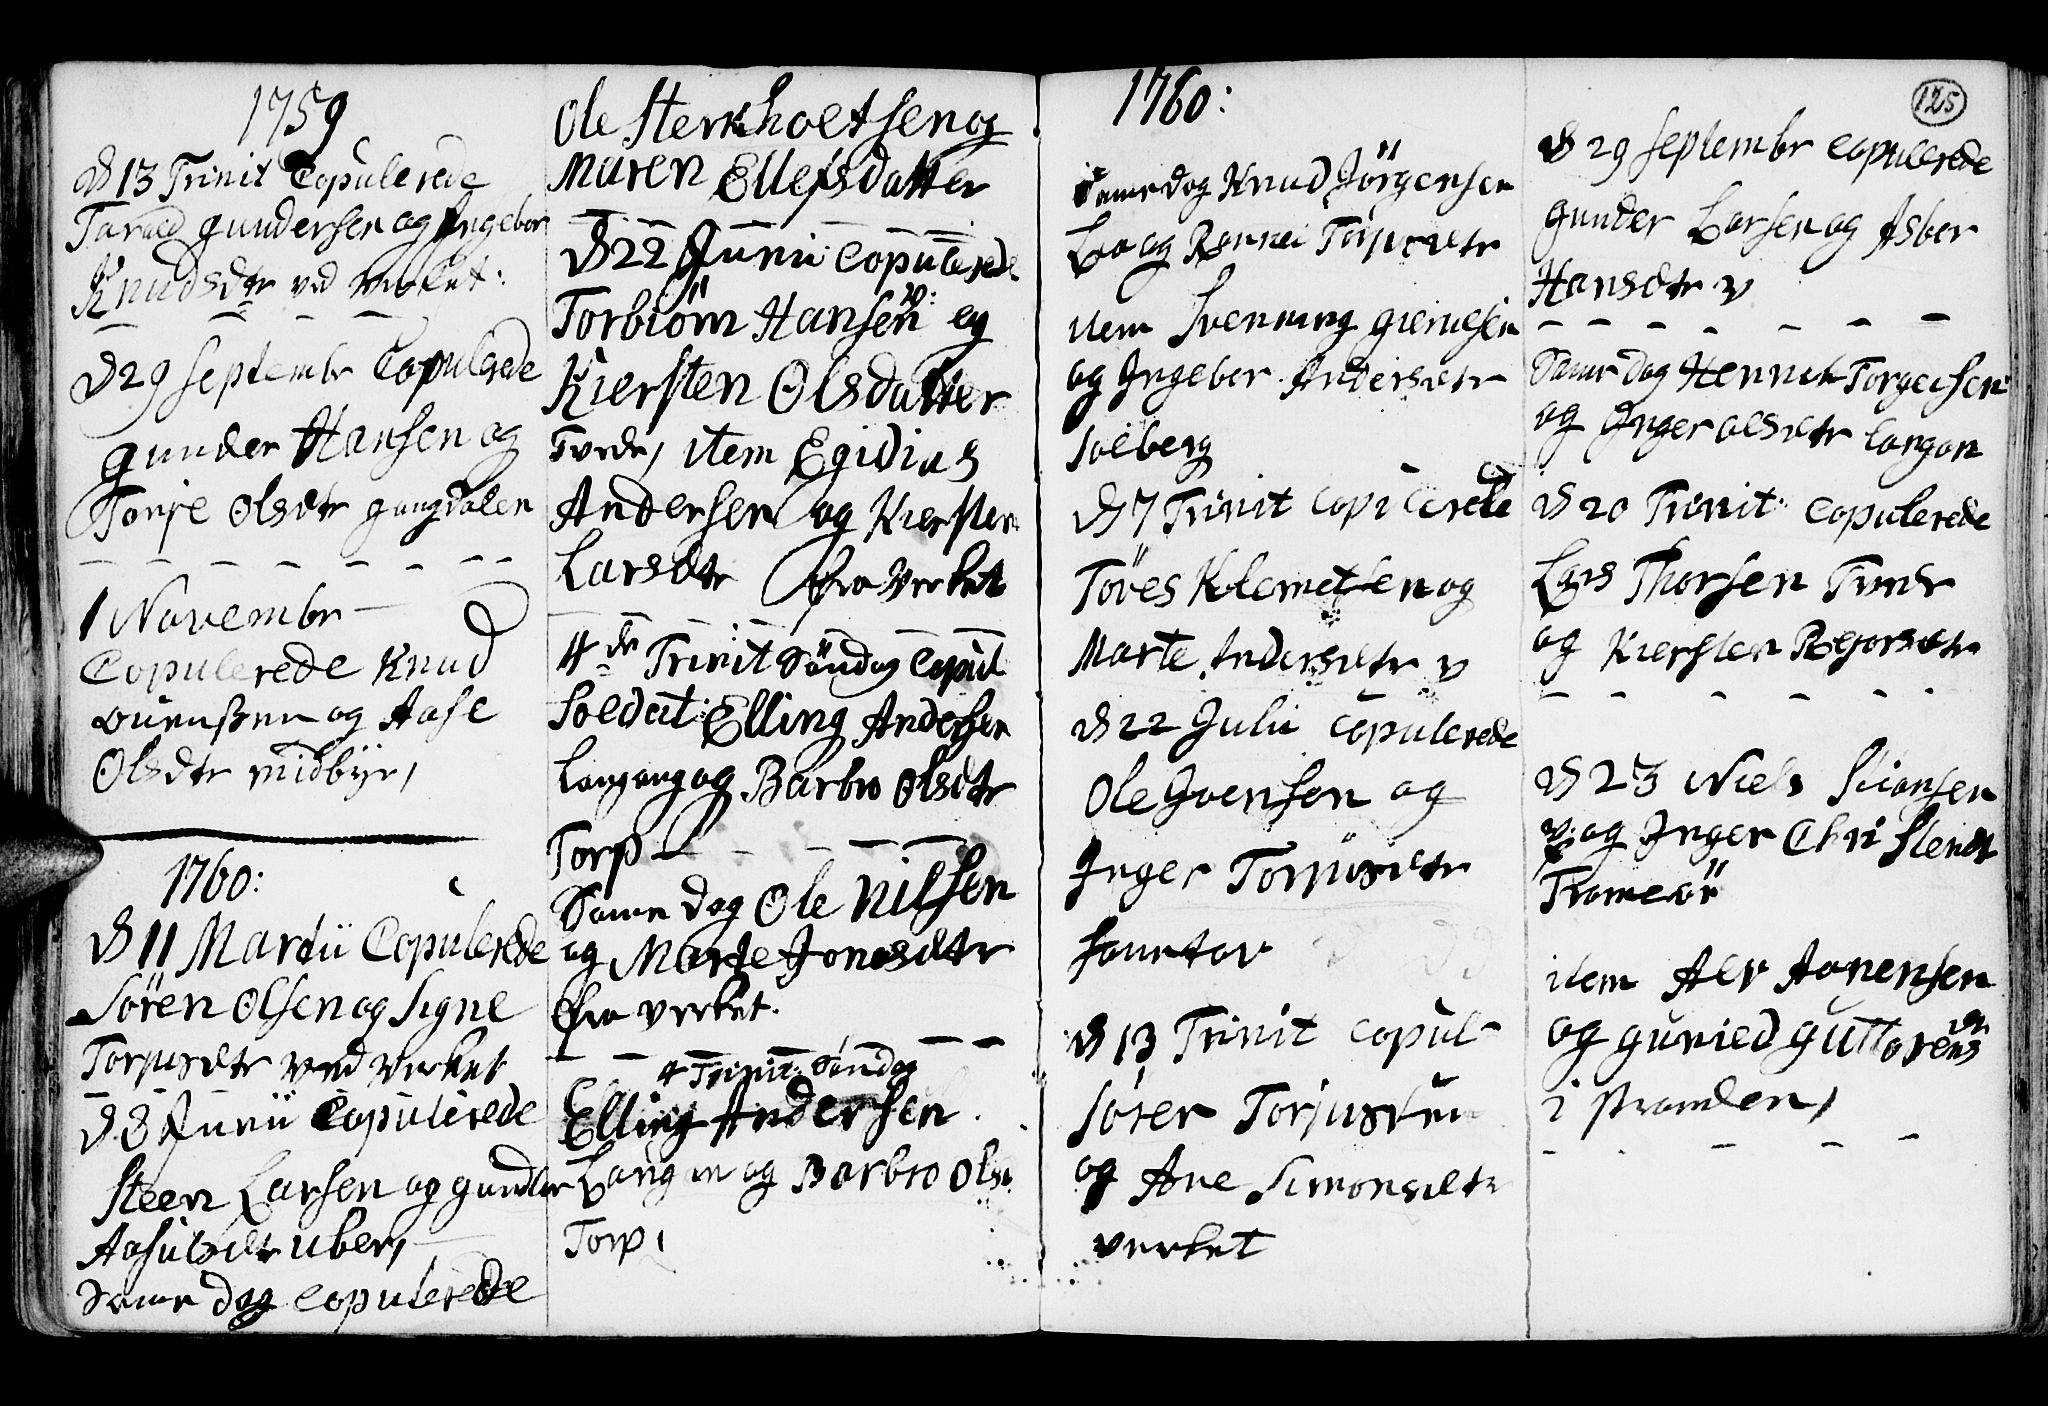 1759
D 13 Trinit Copulerede
Tarald gundersen og Ingebor
Knudsdtr ved verket:
D 29 septembr Copulerede
gunder Hansen og
Tonje Olsdtr gangdalen
1 Novembr
Copulerede Knud
ouensen og Aase
Olsdtr midbÿe,
1760:
D 11 Martii Copulerede
Sören Olsen og Signe
Torjusdtr ved verket
D 8 Junii Copulerede
Steen Larsen og
uber,
Same dag Copulerede
Ole Sterkholtsen og
Maren Ellefsdatter
D 22 Junii Copulerede
Torbiörn Hansen v: og
Kiersten Olsdatter
item Egidius
Andersen og Kiersten
Larsdtr fra verket
4de Trinit Söndag Copul
Soldat Elling Andersen
Langang og Barbro Olsdtr
Torp
Same dag Ole Nilsen
og Marte Jonasdtr
fra verket.
4 Trinit: Söndag
Elling Andersen
og Barbro Ols
Torp,
1760:
Same dag Knud Jörgensen
Lia og Torjusdtr
item Svenning
og Ingebor Andersdtr
Solberg
D 7 Trinit Copulerede
Töves Klemetsen og
Marte Andersdtr v
D 22 Julii Copulerede
Ole Ivenson og
Inger Torjusdtr
D 13 Trinit Copul
Sören Torjusen
og Ane Simonsdtr
verket
125
D 29 septembr Copulerede
gunder Larsen og Asbor
Hansdtr v
Same dag Henrik Torgersen
og Inger olsdtr langan
D 20 Trinit: Copulerede
Lars Thorsen
og Kiersten
D 23 Niels
v: og Inger Christendt
Tromeöe
item Alv Aanensen
og guried guttorms dr
i stranden,